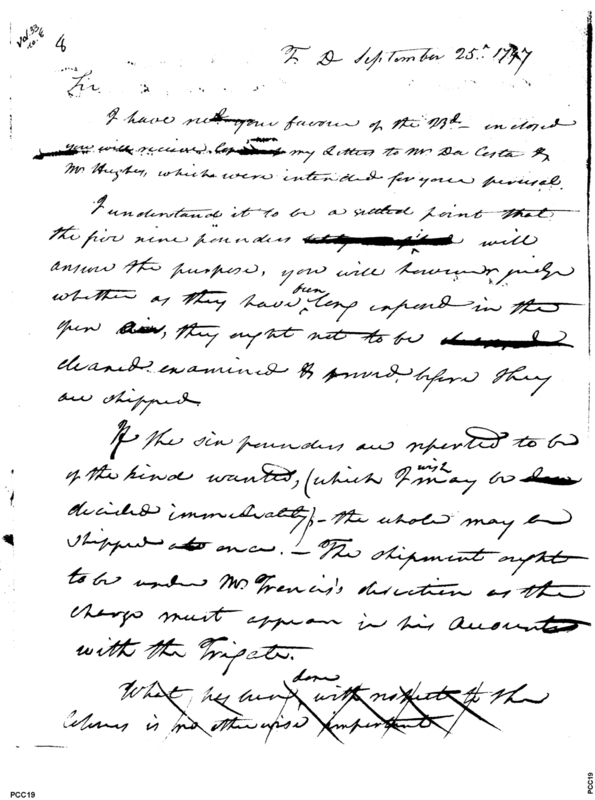 Vol. 33
no. 6
8
T. D September 25. 1797
Sir
I have your favour of the 23d – enclosed
you will receive my Letters to Mr Da Costa &
Mr Hughes, which were intended for your perusal.
I understand it to be a settled point that
the five nine pounders will
answer the purpose, you will however judge
whether as they have been long exposed in the
open air, they ought not to be
cleaned examined & proved, before they
are shipped.
If the six pounders are reported to be
of the kind wanted, (which I wish may be
decided immediately) – the whole may be
shipped at once. – The shipment ought
to be under Mr. Francis's direction as the
charge must appear in his Accounts
with the Frigate.
What has been done with respect to the
is no otherwise important
PCC19
PCC19